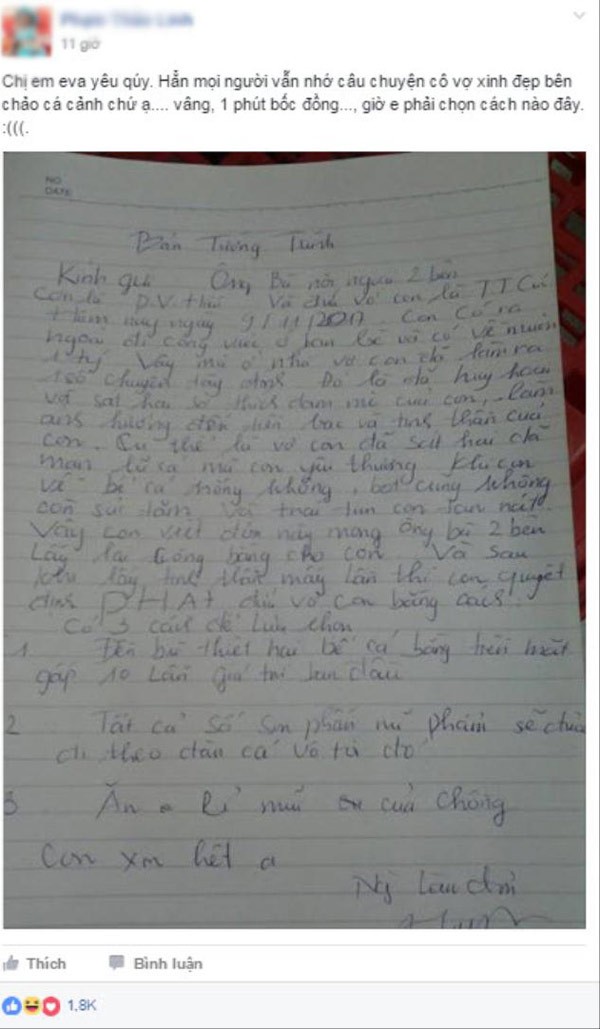 11 giờ
Chị em eva yêu qúy. Hẳn mọi người vẫn nhớ câu chuyện cô vợ xinh đẹp bên
chảo cá cảnh chứ ạ.... vâng, 1 phút bốc đồng..., giờ e phải chọn cách nào đây.
:(((.
NO
DATE
Bản Tường Trình
Kính gửi Ông Bà nội ngoại 2 bên
Con là Đ.V. Và vợ con là T.T
Hôm nay ngày 9/11/2017. Con có ra
ngoài đi công việc ở bên và có về muộn
1 tý Vậy mà ở nhà vợ con đã làm ra
chuyện tày đình Đó là đã hủy hoại
và sát hại sở thích đam mê của con, làm
ảnh hưởng đến tiền bạc và tinh thần của
con. Cụ thể là vợ con đã sát hại dã
man lũ cá mà con yêu thương Khi con
về bể cá trống không, bọt cũng không
còn sủi tăm. Và trái tim con tan nát.
Vậy con viết đơn này mong ông bà 2 bên
Lấy lại công bằng cho con. Và sau
khi lấy tinh thần mấy lần thì con quyết
định PHẠT vợ con bằng cách:
Có 3 cách để lựa chọn
1 Đền bù thiệt hại bể cá bằng tiền mặt
gấp 10 Lần giá trị ban đầu
2 Tất cả số son phấn mỹ phẩm sẽ
đi theo đàn cá về tự do
3 Ăn Rỉ mũi của chồng
Con xin hết ạ
Thích Bình luận
1,8K